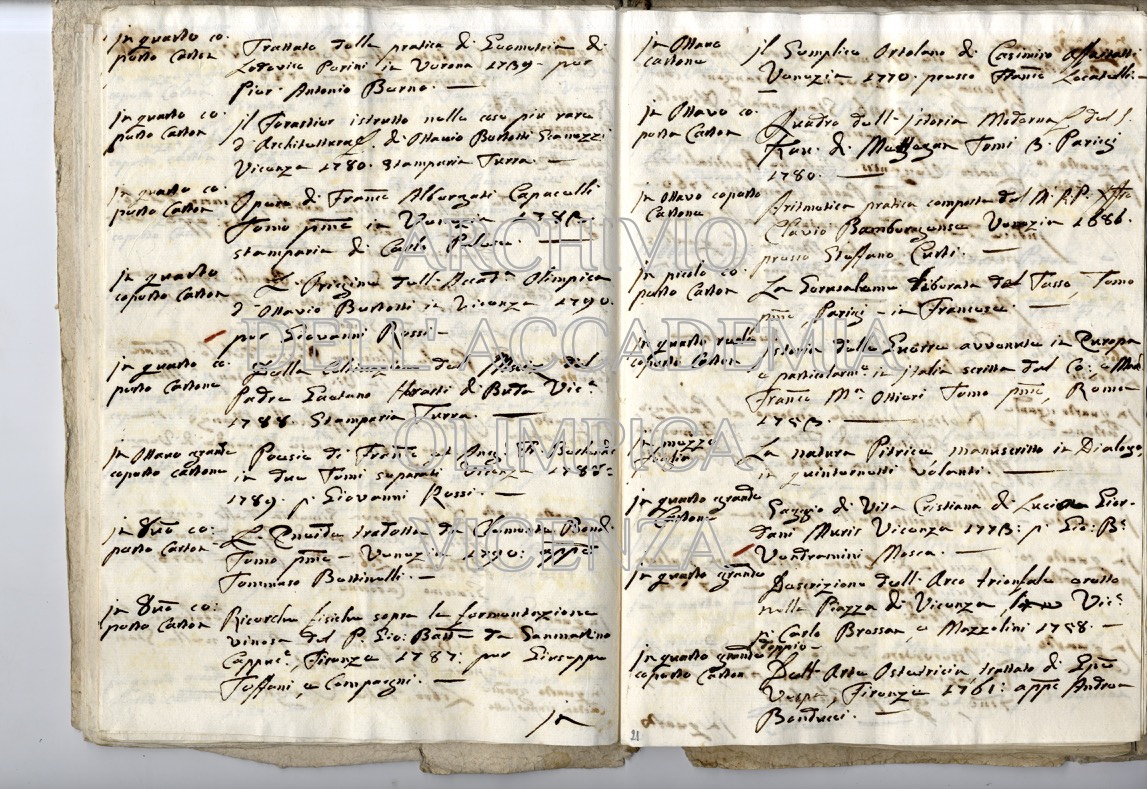 in quarto co:
perto Carton
Trattato della pratica di Geometria di
Lodovico Perini in Verona 1739 - per
Pier Antonio Berno. —
in quarto co:
perto Carton
il Forastier istrutto nelle cose più rare
d'Architettura, di Ottavio Bertotti Scamozzi
Vicenza 1780. Stamparia Turra. —
in quarto co:
perto Carton
Opere di Franc. Albergati Capacelli
Tomo pmo in Venezia
stamparia di Carlo Palese. —
in quarto
coperto Carton
L'Origine dell'Accad.a Olimpica
d'Ottavio Bertotti in Vicenza 1790.
per Giovanni Rossi -
in quarto co:
perto Cartone
Della del del
Padre Gaetano da Vic.a
1788. Stamparia Turra. —
in Ottavo grande
coperto cartone
Poesie di
in due Tomi separati Vicenza 1788-
1789. p. Giovanni Rossi. —
in 8vo co:
perto Carton
L'Eneide tradotta da Clemente Bondi
Tomo pmo - Venez.a 1790: appo
Tommaso Bettinelli. —
in 8vo co:
perto Carton
Ricerche fisiche sopra la fermentazione
vinosa del P. Gio: Batta da Sanmartino
Capp.o, Firenze 1787: per Giuseppe
Tofani, e Compagni. —
in
in Ottavo
cartone
il Semplice Ortolano di Casimiro Affaitati
Venezia 1770. presso Franc.o Locatelli.
in Ottavo co:
perto Carton
Quadro dell'Istoria Moderna del S.
Kav. di Mehegan Tomi 3. Parigi
1780. —
in Ottavo coperto
Cartone
Aritmetica pratica composta dal M.R.P.
Clavio Bambergense Venezia 1686.
presso Steffano Curti. —
in picolo co:
perto Carton
La Gerusaleme liberata del Tasso, Tomo
pmo, Parigi - in Francese. —
in quarto
coperto Carton
Istoria delle Guerre avvenute in Europa
e particolarm.e in Italia scritta dal Co:
Franc.o M.a Ottieri Tomo pmo, Roma
—
in mezzo
foglio
La natura Pitrica, manuscritto in Dialogo,
in quinternetti volanti. —
in quarto grande
Cartone
Saggio di Vita Cristiana di Lucia Gior-
dani Muris Vicenza 1773: p. Gio: B.a
Vendramini Mosca. —
in quarto grande
Descrizione dell'Arco trionfale eretto
nella Piazza di Vicenza, Vic.a
p. Carlo Bressan, e Mezzolini 1758. —
in quarto grande
coperto Carton
doppio -
Dell'Arte Ostetricia, trattato di
Vespa, Firenze 1761: appo Andrea
Bonducci. —
21
ARCHIVIO
DELL'ACCADEMIA
OLIMPICA
VICENZA